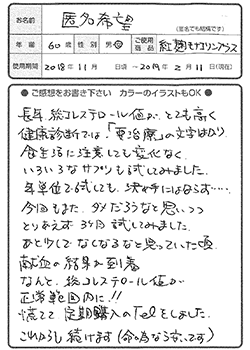 お名前 匿名希望 (匿名でも結構です)
年齢 60歳 性別 男・女 ご使用商品 紅麹モナコリンプラス
使用期間 2018年11月 日頃 ~ 2019年2月11日(現在)
●ご感想をお書き下さい カラーのイラストもOK●
長年 総コレステロール値が、とても高く
健康診断では「要治療」の文字ばかり
食生活に注意しても変化なく、
いろいろなサプリも試してみました。
年単位で試しても、決め手にはならず……
今回もまた、ダメだろうなと思いつつ
とりあえず 3ヶ月 試してみました。
あと少しで なくなるなと思っていた頃、
献血の結果が到着
なんと、総コレステロール値が
正常範囲内に!!
慌てて 定期購入のTelをしました。
これからも 続けます(命の為なら安いです)